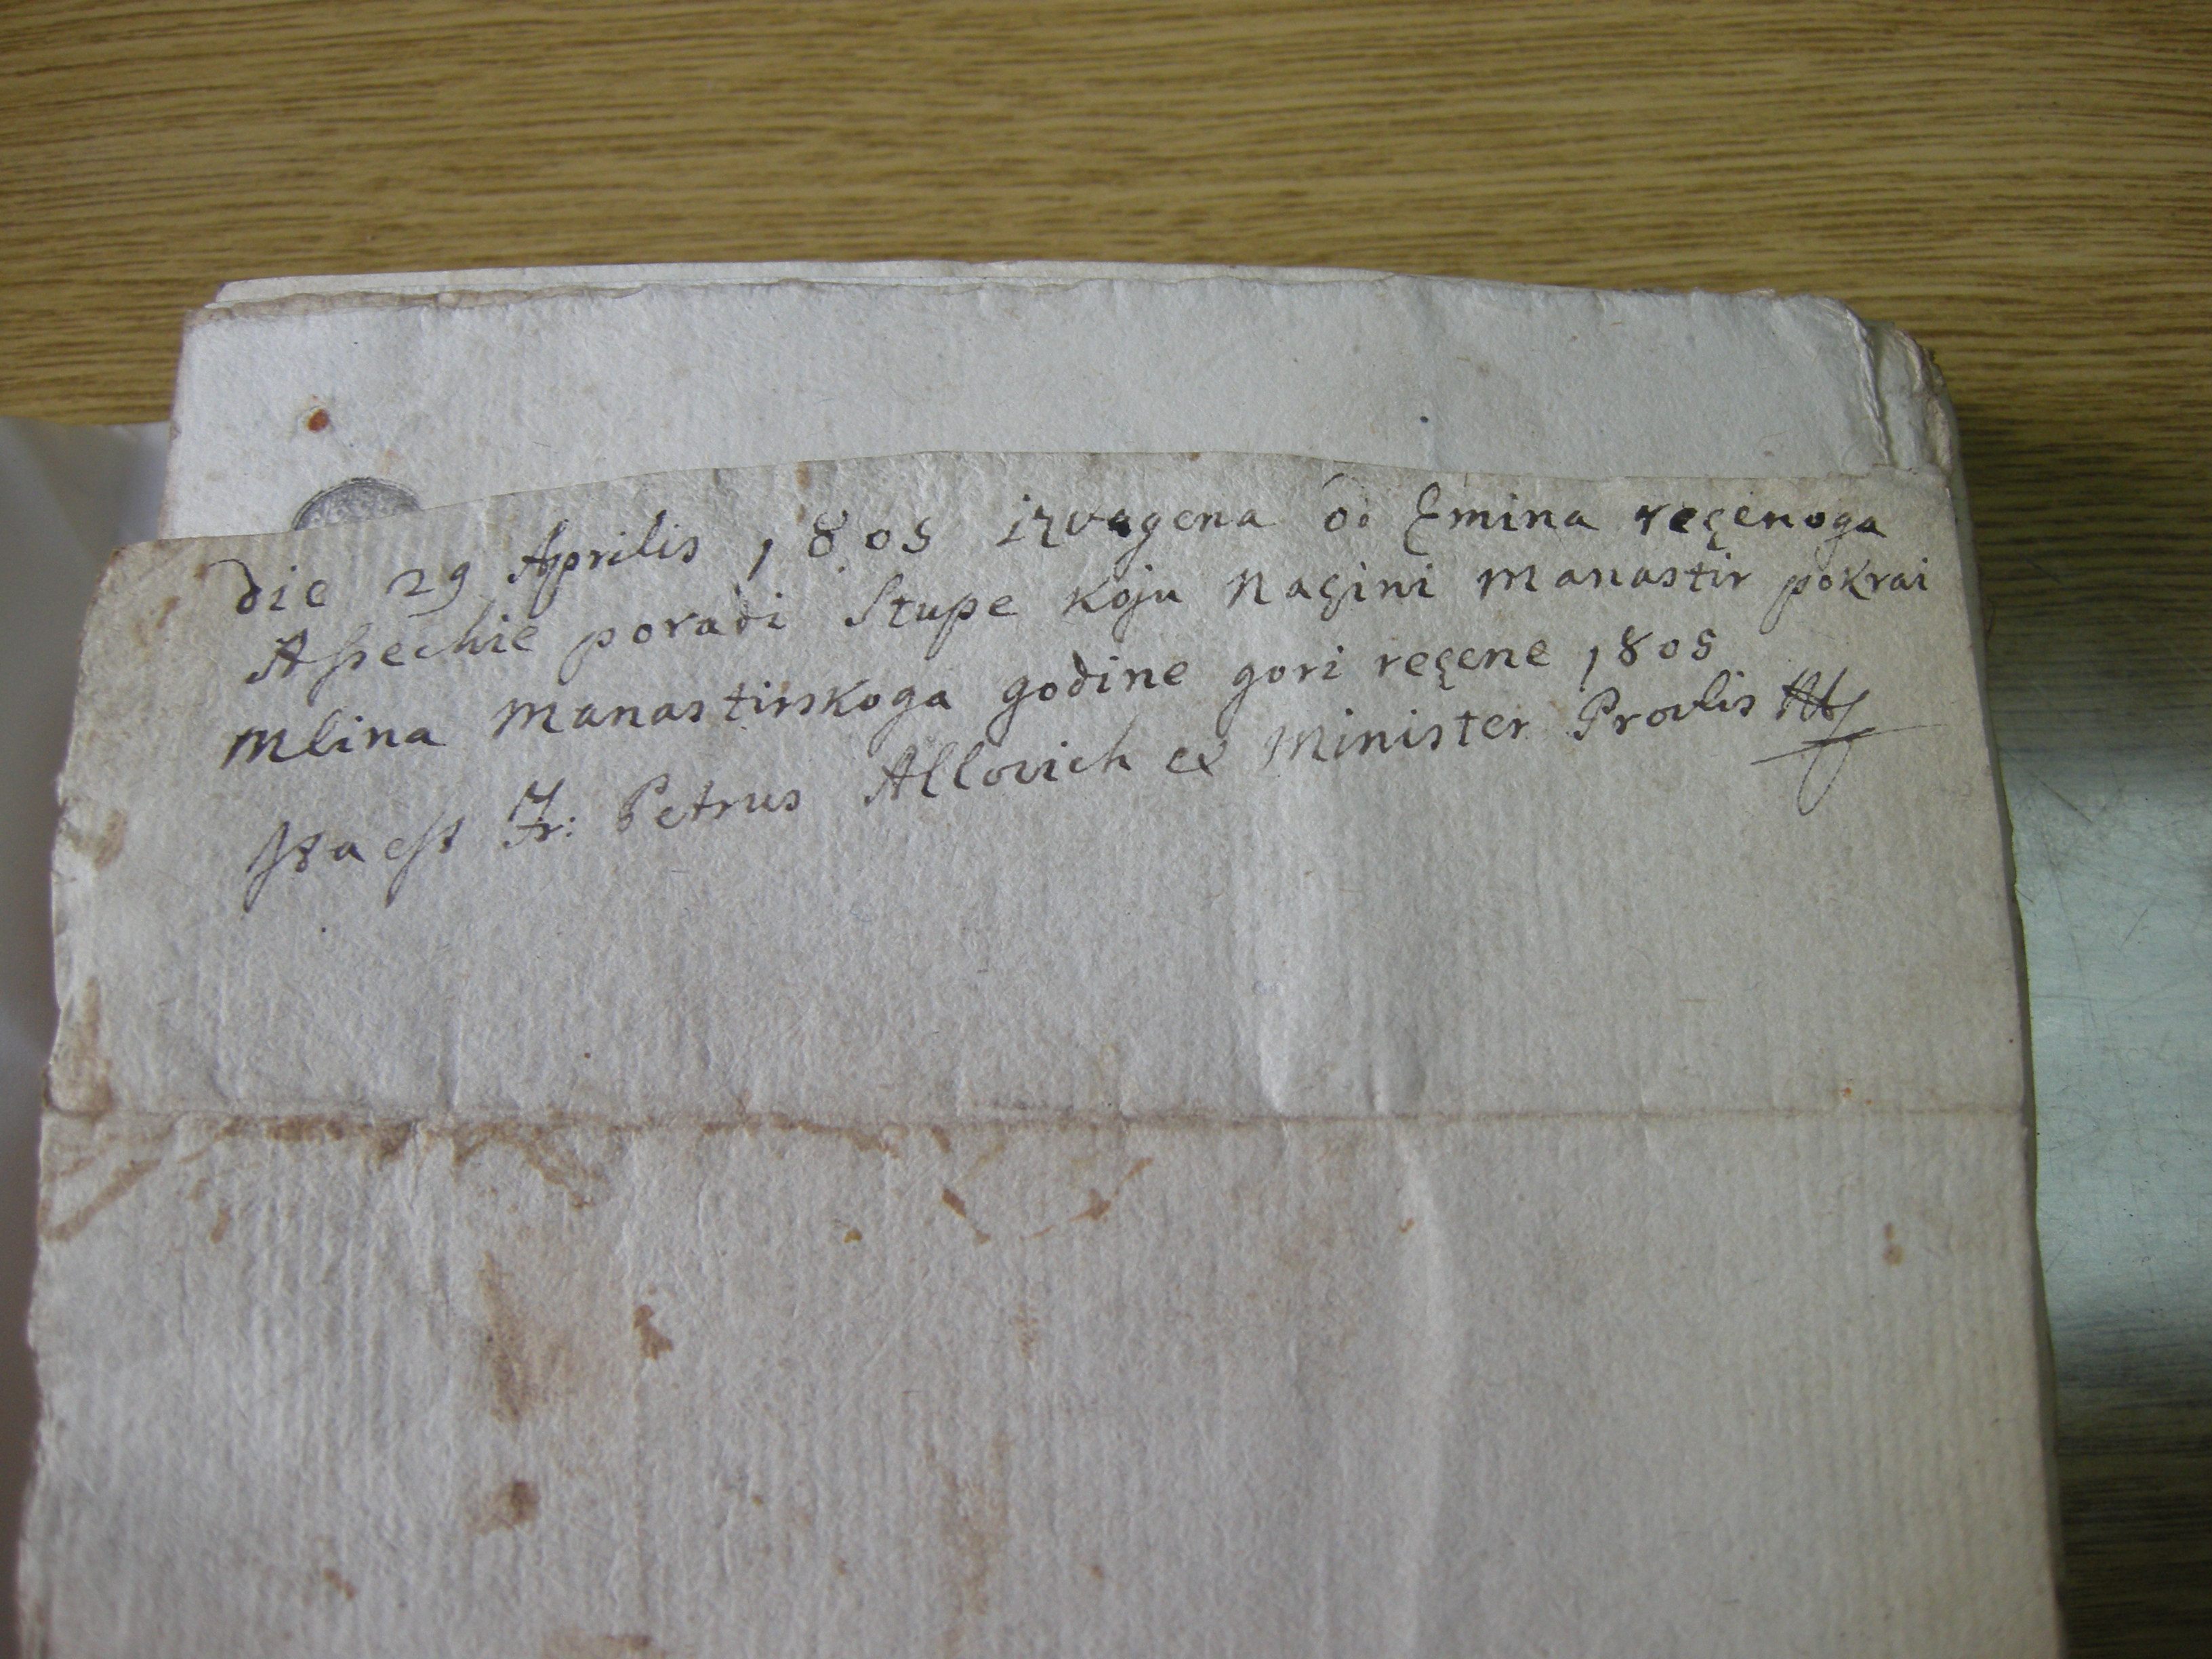 die 29 Aprilis 1805 izvagena od Emina reçenoga
Assechie poradi Stupe koju naçini manastir pokrai
mlina manastirskoga godine gori reçene 1805
Ita est Fr: Petrus Allovich ex Minister Provlis